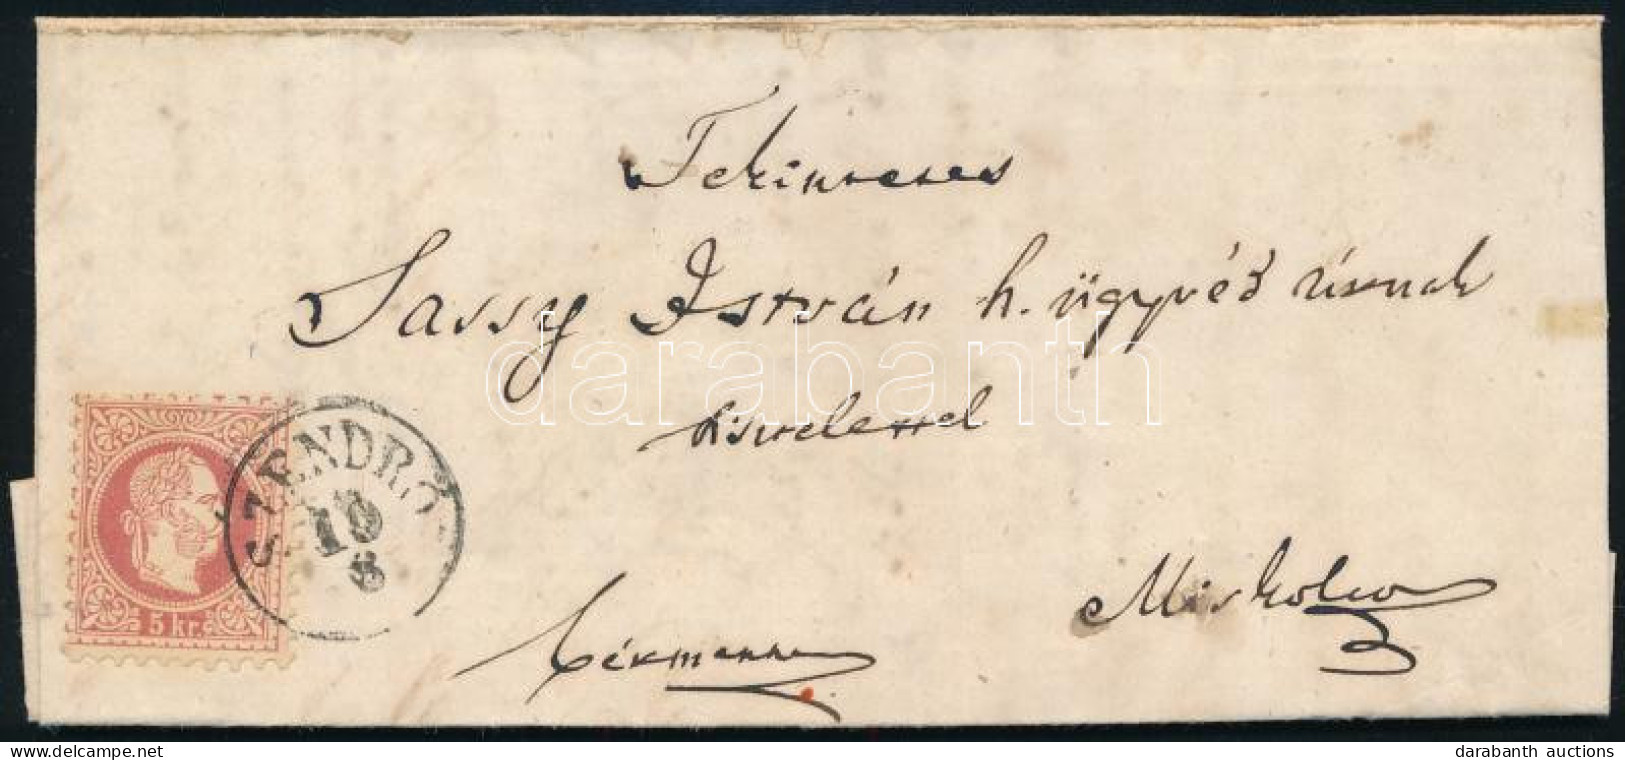 Tekintetes
Sassy István h. ügyvéd úrnak
tisztelettel
Miskolcz
bérmentve
SZENDRŐ
19
8
5 kr.
darabanth
www.delcampe.net
darabanth auctions